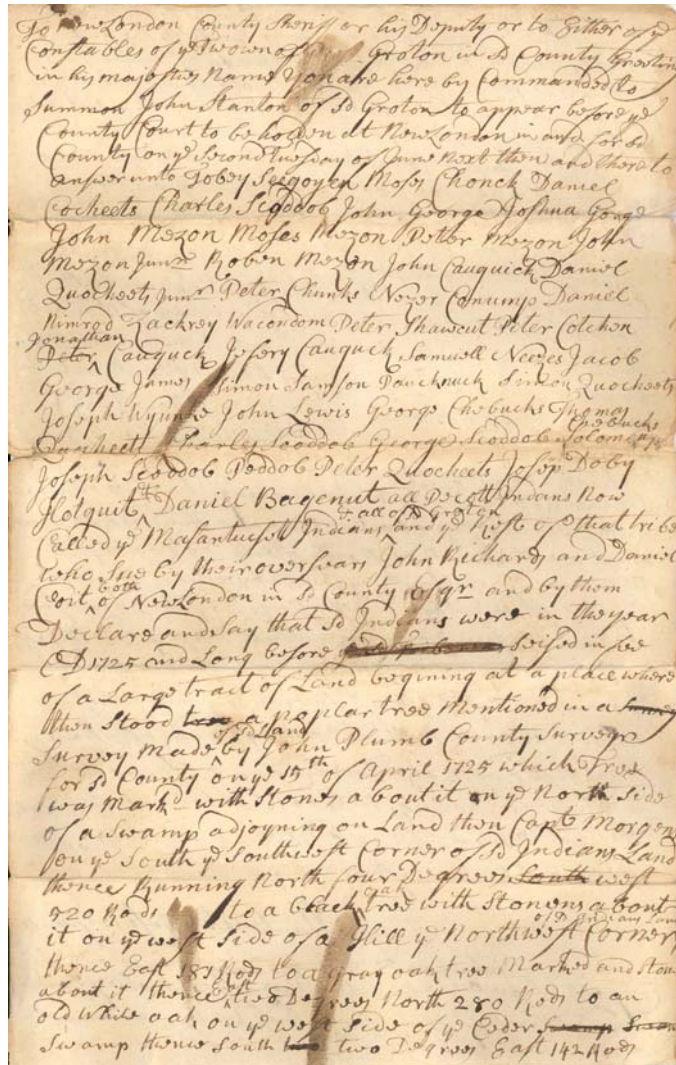 To New London County Sheriff or his Deputy or to Either of ye
Constables of ye Town of Groton in sd County Greeting
in his majesties Name You are here by Commanded to
Summon John Stanton of sd Groton to appear before ye
County Court to be holden at New London in and for sd
County on ye Second tuesday of June Next then and there to
answer unto Tobey Seegoyen Moses Chonck Daniel
Cocheets Charles Scoddob John George Joshua Gorge
John Mezon Moses Mezon Peter Mezon John
Mezon Junr Roben Mezon John Cauquick Daniel
Quocheets Junr Peter Chunks Nezer Conump Daniel
Nimrod Zackrey Wacondom Peter Shawcut Peter Cotchen
Jonathan
Peter Cauguck Josery Cauguck Samuell Neezes Jacob
George James Simon Samson Pauchnuck Simon Quocheets
Joseph Wynnes John Lewis George Chebucks Thomas
Quocheets Charles Scoddob George Scoddob Solomon Chebucks
Joseph Scoddob Peddob Peter Quocheets Josep Doby
Hotquit & Daniel Bagenut all Pecott Indans Now
& all of sd Groton
Called ye Masantuset Indians and ye Rest of that tribe
who Sue by their oversears John Richards and Daniel
Coit both of New London in sd County Esqr and by them
Declare and Say that sd Indians were in the year
AD 1725 and Long before seised in fee
of a Large tract of Land begining at a place where
then Stood tree a poplar tree Mentioned in a Survey
of sd Land
Survey Made by John Plumb County Surveyr
for sd County on ye 15th of April 1725 which Tree
was Markd with Stones about it on ye North Side
of a Swamp adjoyning on Land then Capt Morgens
on ye South ye Southwest Corner of sd Indians Land
thence Running North four Degrees South west
820 Rods to a black oak tree with Stonens about
of sd Indians Land
it on ye west Side of a Hill ye Northwest Corner
thence East 187 Rods to a Gray oak tree Marked and Stons
about it thence East two Degrees North 280 Rods to an
old White oak on ye west Side of ye Ceder Swamp Swam
Swamp thence South two Degrees East 142 Rods